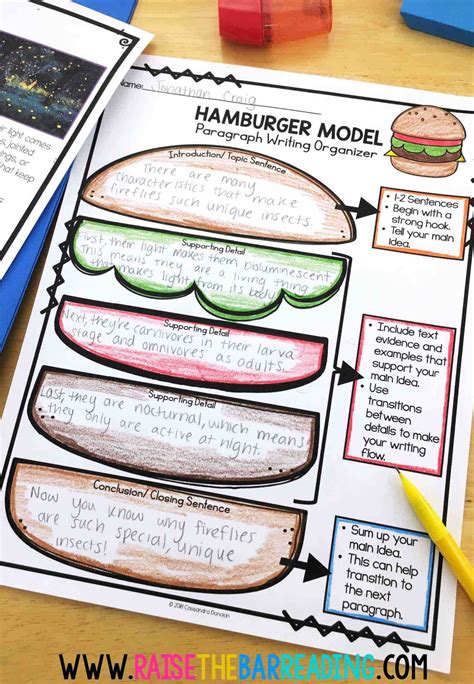 Name: Jonathan Craig
HAMBURGER MODEL
Paragraph Writing Organizer
Introduction/Topic Sentence
There are many
characteristics that make
fireflies such unique insects.
1-2 Sentences
Begin with a
strong hook.
Tell your main
idea.
Supporting Detail
First, their light makes them bioluminescent
This means they are a living thing
that makes light from its body
Supporting Detail
Next, they're carnivores in their larva
stage and omnivores as adults.
Supporting Detail
Last, they are nocturnal, which means
they only are active at night.
Include text
evidence and
examples that
support your
main idea.
Use
transitions
between
details to make
your writing
flow.
Conclusion/Closing Sentence
Now you know why fireflies
are such special, unique
insects!
Sum up your
main idea.
This can help
transition to
the next
paragraph.
light comes
jointed
or
keep
©2018 Cassandra Donoian
WWW.RAISETHEBARREADING.COM